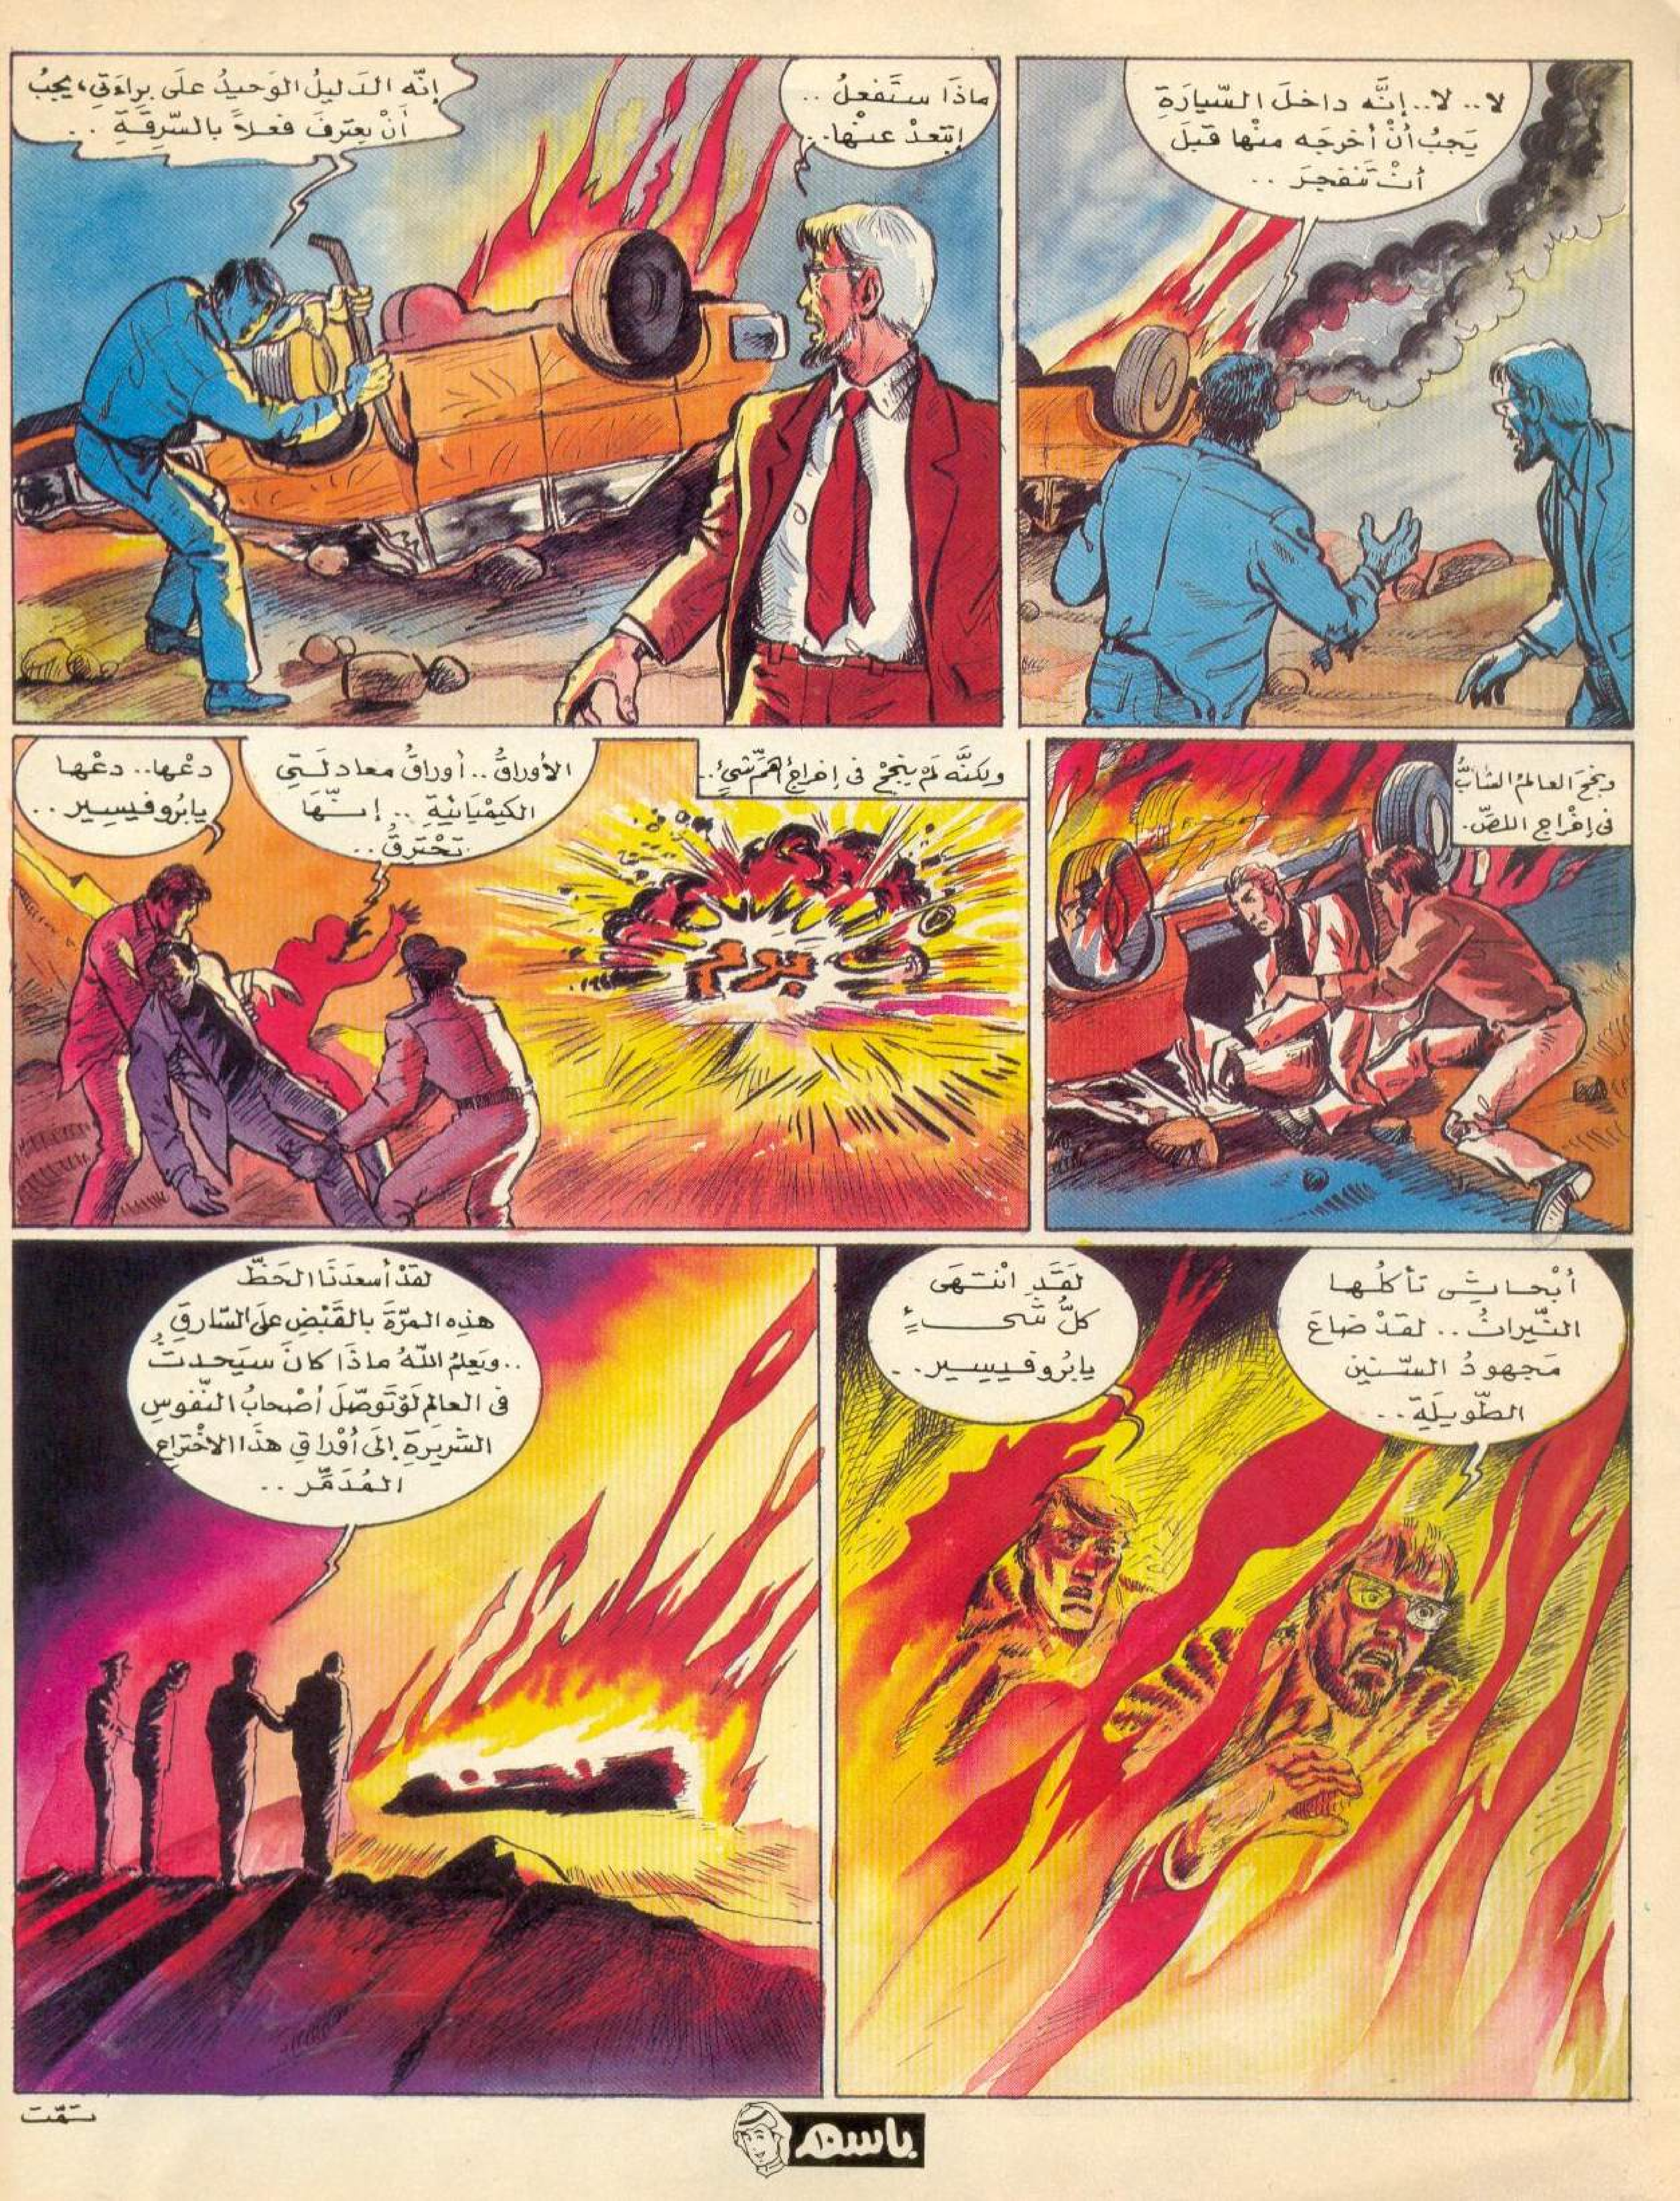 لا.. لا.. إنَّه داخلَ السّيارَةِ
يَجبُ أنْ أخرجَه منْها قبلَ
أنْ تَنفجرَ ..
ماذَا ستَفعلُ ..
إبتَعدْ عنْها..
إنّه الدَليلُ الوَحيدُ علَى براءَتي، يجبُ
أنْ يعترفَ فعلاً بالسّرقَةِ ..
ونجحَ العالمُ الشابُّ
في إخْراجِ اللصّ.
ولكنَّه لَمْ ينجحْ في إخراجِ أهمّ شيءٍ..
الأوراقُ.. أوراقُ معادلَتي
الكيمْيَائيةِ .. إنّهَا
تَحْترقُ..
دعْها.. دعْها
يابُروفيسِير ..
بوم
أبْحاثِي تأكلُها
النّيرانُ.. لقدْ ضاعَ
مَجهودُ السّنينِ
الطّويلَةِ..
لقَدِ انْتهَى
كلُّ شَيءٍ
يابُروفيسِير..
لقدْ أسعدَنَا الحَظّ
هذِه المرّةَ بالقَبْضِ علَى السّارقِ
..ويَعلمُ اللهُ ماذَا كانَ سيَحدثُ
في العالمِ لَوْ تَوصّلَ أصْحابُ النّفوسِ
الشّريرَةِ إلَى أوْراقِ هذَا الاخْتراعِ
المُدَمِّر ..
تمّت
باسم